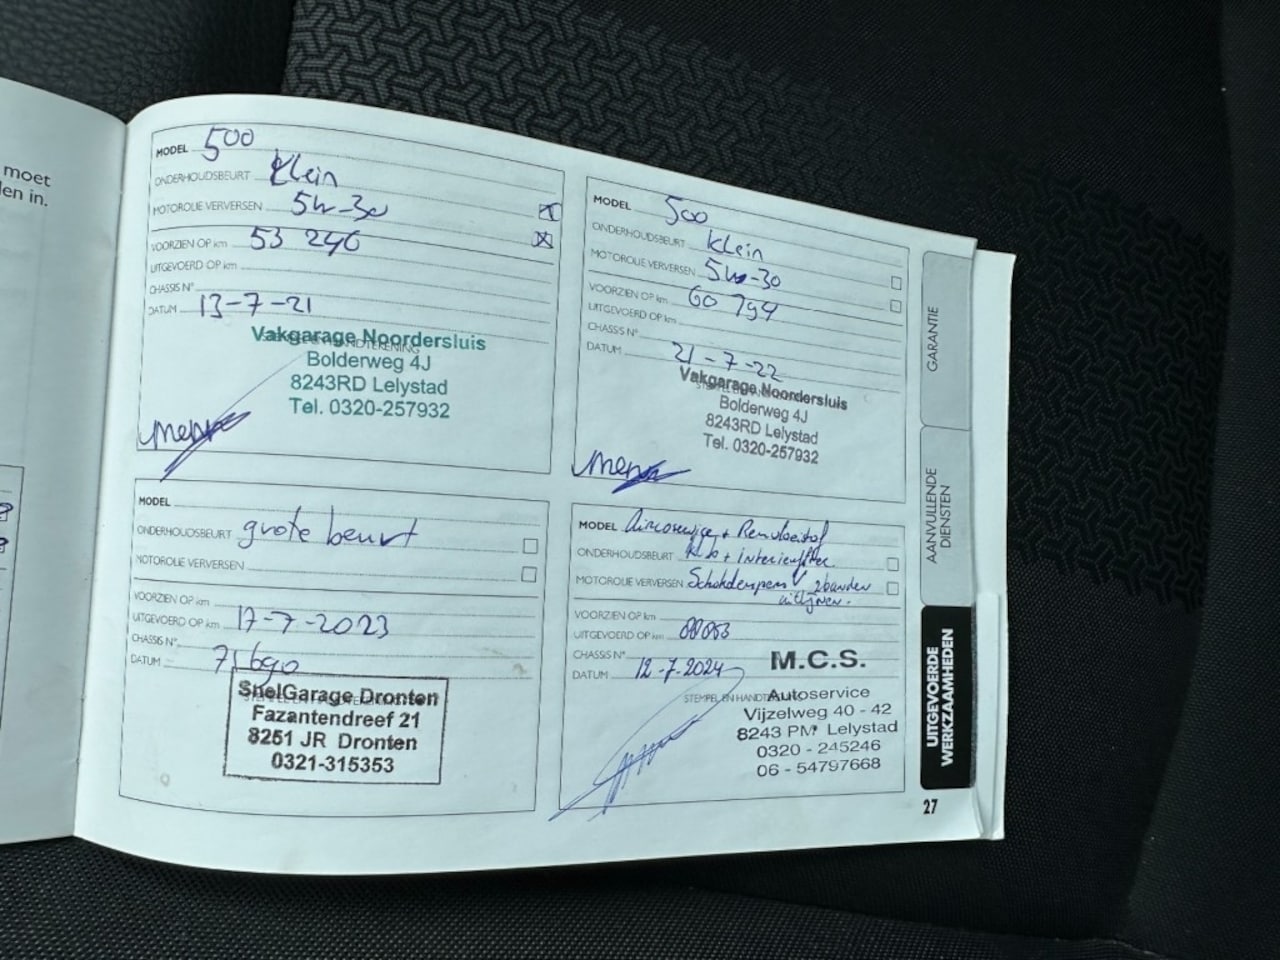 moet
en in.
MODEL 500
ONDERHOUDSBEURT Klein
MOTOROLIE VERVERSEN 5W-30
VOORZIEN OP km 53 246
UITGEVOERD OP km
CHASSIS N°
DATUM 13-7-21
Vakgarage Noordersluis
Bolderweg 4J
8243RD Lelystad
Tel. 0320-257932
MODEL 500
ONDERHOUDSBEURT Klein
MOTOROLIE VERVERSEN 5W-30
VOORZIEN OP km 60 794
UITGEVOERD OP km
CHASSIS N°
DATUM 21-7-22
Vakgarage Noordersluis
Bolderweg 4J
8243RD Lelystad
Tel. 0320-257932
MODEL
ONDERHOUDSBEURT grote beurt
MOTOROLIE VERVERSEN
VOORZIEN OP km
UITGEVOERD OP km 17-7-2023
CHASSIS N°
DATUM 71690
SnelGarage Dronten
Fazantendreef 21
8251 JR Dronten
0321-315353
MODEL Aircoservice + Remvloeistof
ONDERHOUDSBEURT + Interieurfilter
MOTOROLIE VERVERSEN Schokdempers V 2banden
uitlijnen.
VOORZIEN OP km
UITGEVOERD OP km
CHASSIS N°
DATUM 12-7-2024
STEMPEL EN HANDTEKENING
M.C.S.
Autoservice
Vijzelweg 40 - 42
8243 PM Lelystad
0320 - 245246
06 - 54797668
GARANTIE
AANVULLENDE
DIENSTEN
UITGEVOERDE
WERKZAAMHEDEN
27